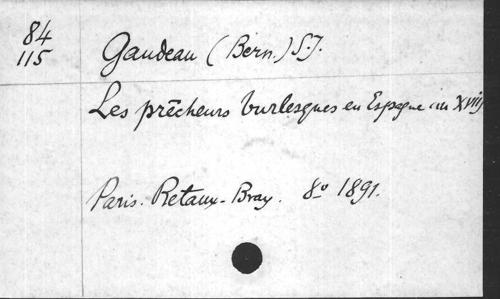 84
115
Gaudeau (Bern.) S.J.
Les prêcheurs burlesques en Espagne au XVIII
Paris. Retaux-Bray. 8º 1891.